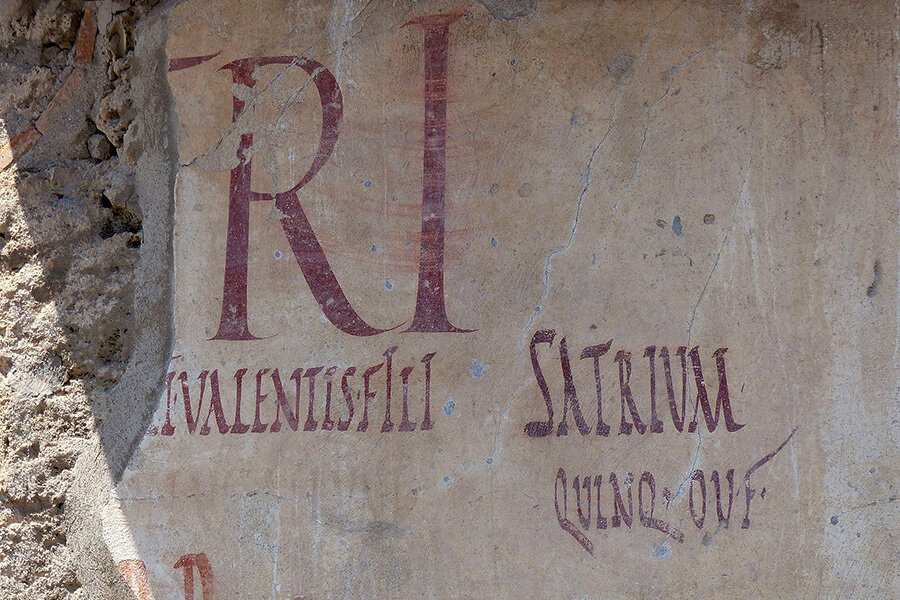 RI
VALENTIS·FILI
SATRIVM
QVINQ· OV·F·